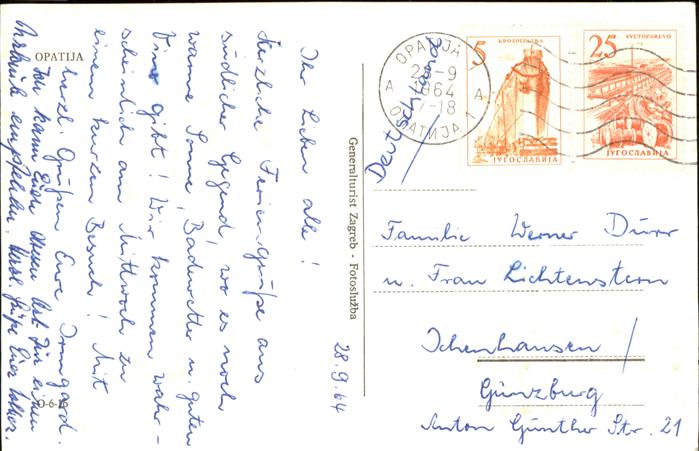 OPATIJA
Ihr Lieben alle!
Herzliche Feriengrüße aus
südlicher Gegend, wo es noch
warme Sonne, Badewetter u. guten
Vino gibt! Wir kommen wahr-
scheinlich am Mittwoch zu
einem kurzen Besuch! Mit
herzl. Grüßen Eure Irmgard.
Ich kann Euch diesen Ort für einen
Urlaub empfehlen. Herzl. Grüße Euer
28.9.64
O-6-16
Generalturist Zagreb - Fotoslužba
OPATIJA 1
-9
1964
-18
A A
ОПАТИЈА 1
5
БРОДОГРАДЊА
ЈУГОСЛАВИЈА
25
SVETOZAREVO
JUGOSLAVIJA
Deutschland
Familie Werner Dürr
u. Frau Lichtenstern
Ichenhausen /
Günzburg
Anton Günther Str. 21